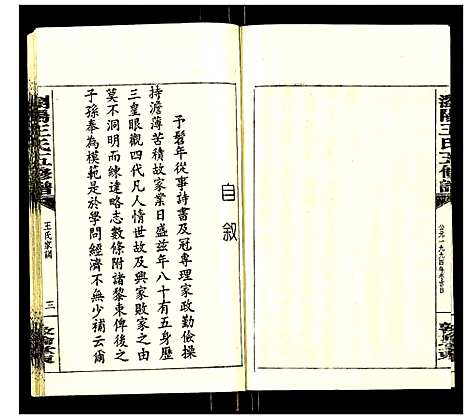 瀏陽王氏五修譜
自叙
予髫年從事詩書及冠專理家政勤儉操
持澹薄苦積故家業日盛茲年八十有五身歷
三皇眼觀四代凡人情世故及興家敗家之由
莫不洞明而練達略志數條附諸黎東俾後之
子孫奉為模範是於學問經濟不無少補云爾
瀏陽王氏五修譜
王氏家訓
三
敦倫堂